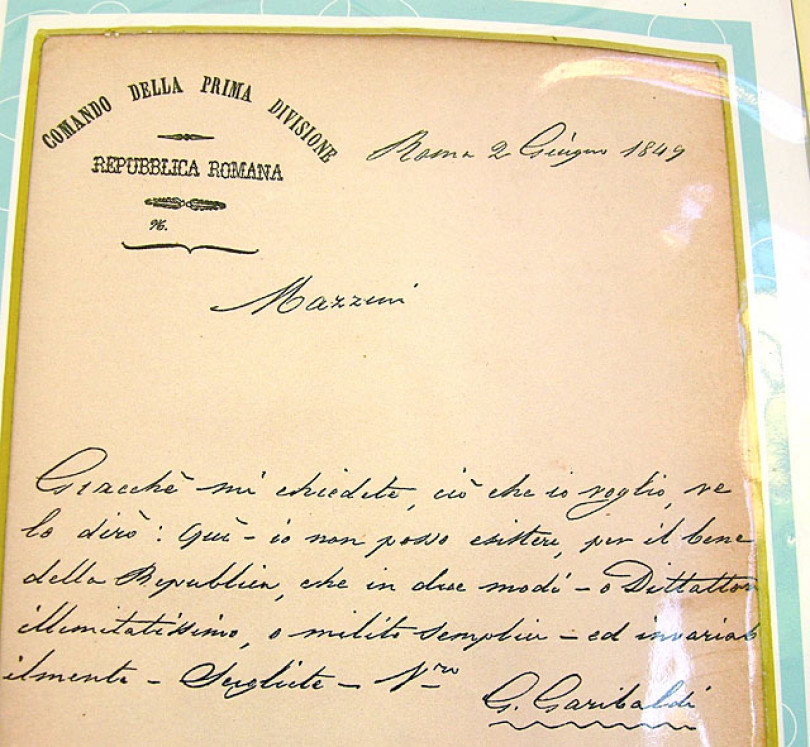 COMANDO DELLA PRIMA DIVISIONE
REPUBBLICA ROMANA
N.
Roma 2 Giugno 1849
Mazzini
Giacchè mi chiedete, ciò che io voglio, ve
lo dirò: Quì - io non posso esistere, per il bene
della Republica, che in due modi - o Dittator
illimitatissimo, o milite semplice - ed invariab
ilmente - Scegliete - V.ro
G. Garibaldi